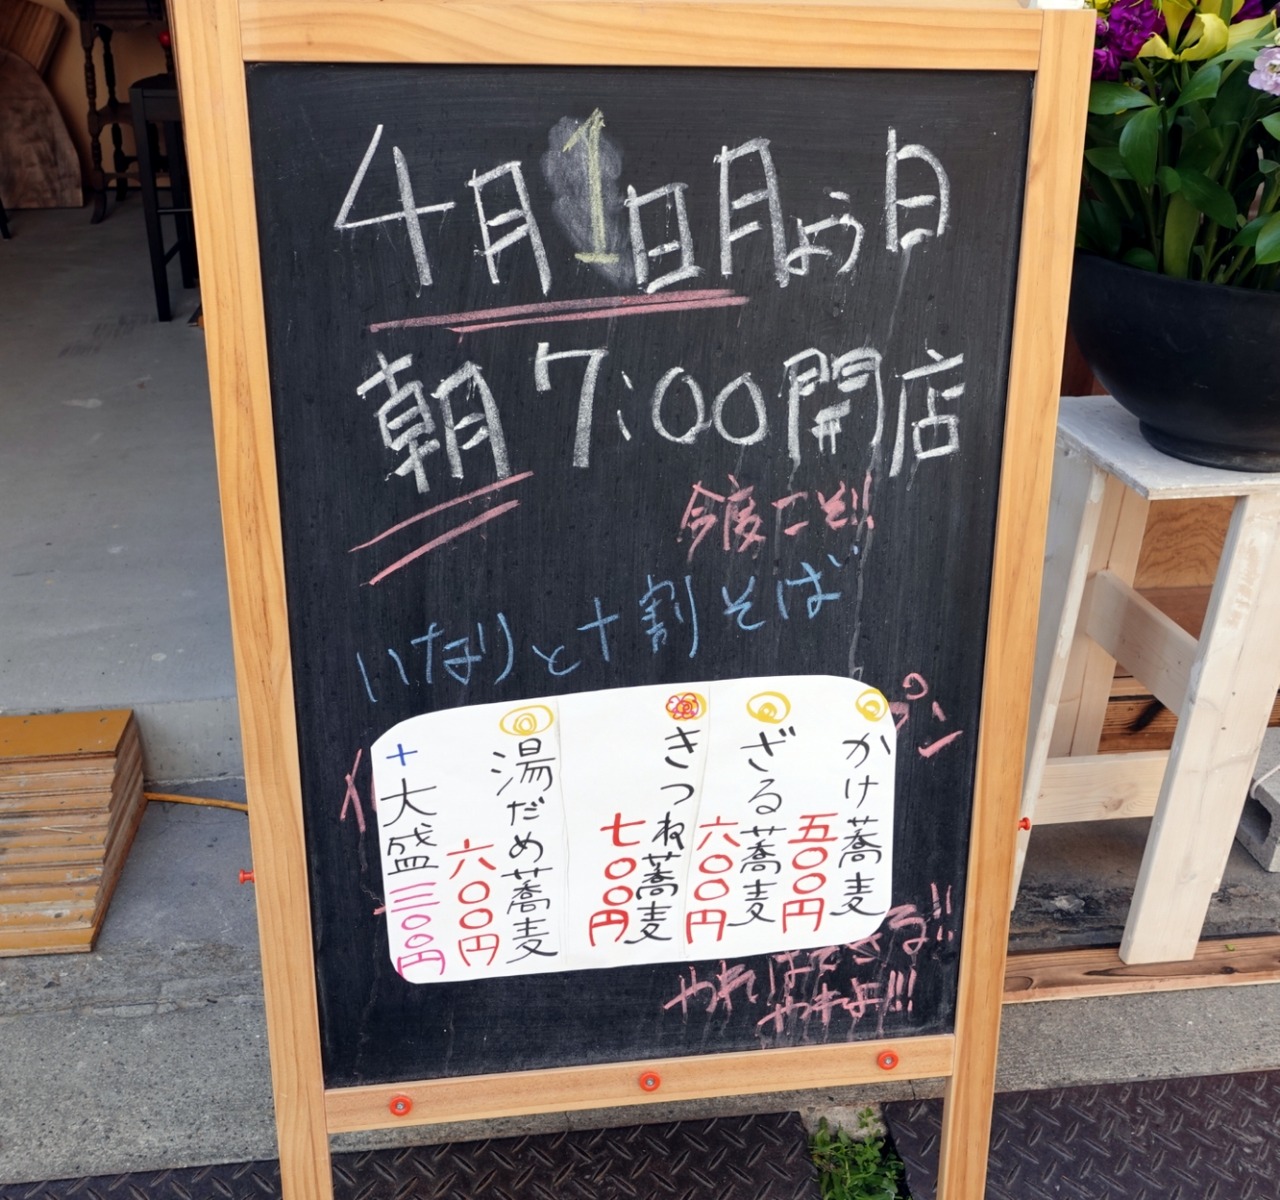 4月1日月よう日
朝7:00開店
今度こそ!!
いなりと十割そば
かけ蕎麦
五〇〇円
ざる蕎麦
六〇〇円
きつね蕎麦
七〇〇円
湯だめ蕎麦
六〇〇円
+大盛
三〇〇円
プン
やればできる!!
やれよ!!!